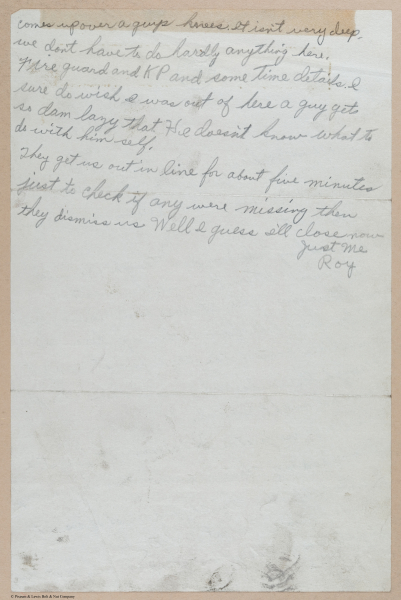 comes up over a guys knees. It isn't very deep.
we dont have to do hardly anything here.
Fire guard and KP and some time details. I
sure do wish I was out of here a guy gets
so dam lazy that He doesn't know what to
do with him self.
They get us out in line for about five minutes
just to check if any were missing then
they dismiss us Well I guess I'll close now
Just Me
Roy